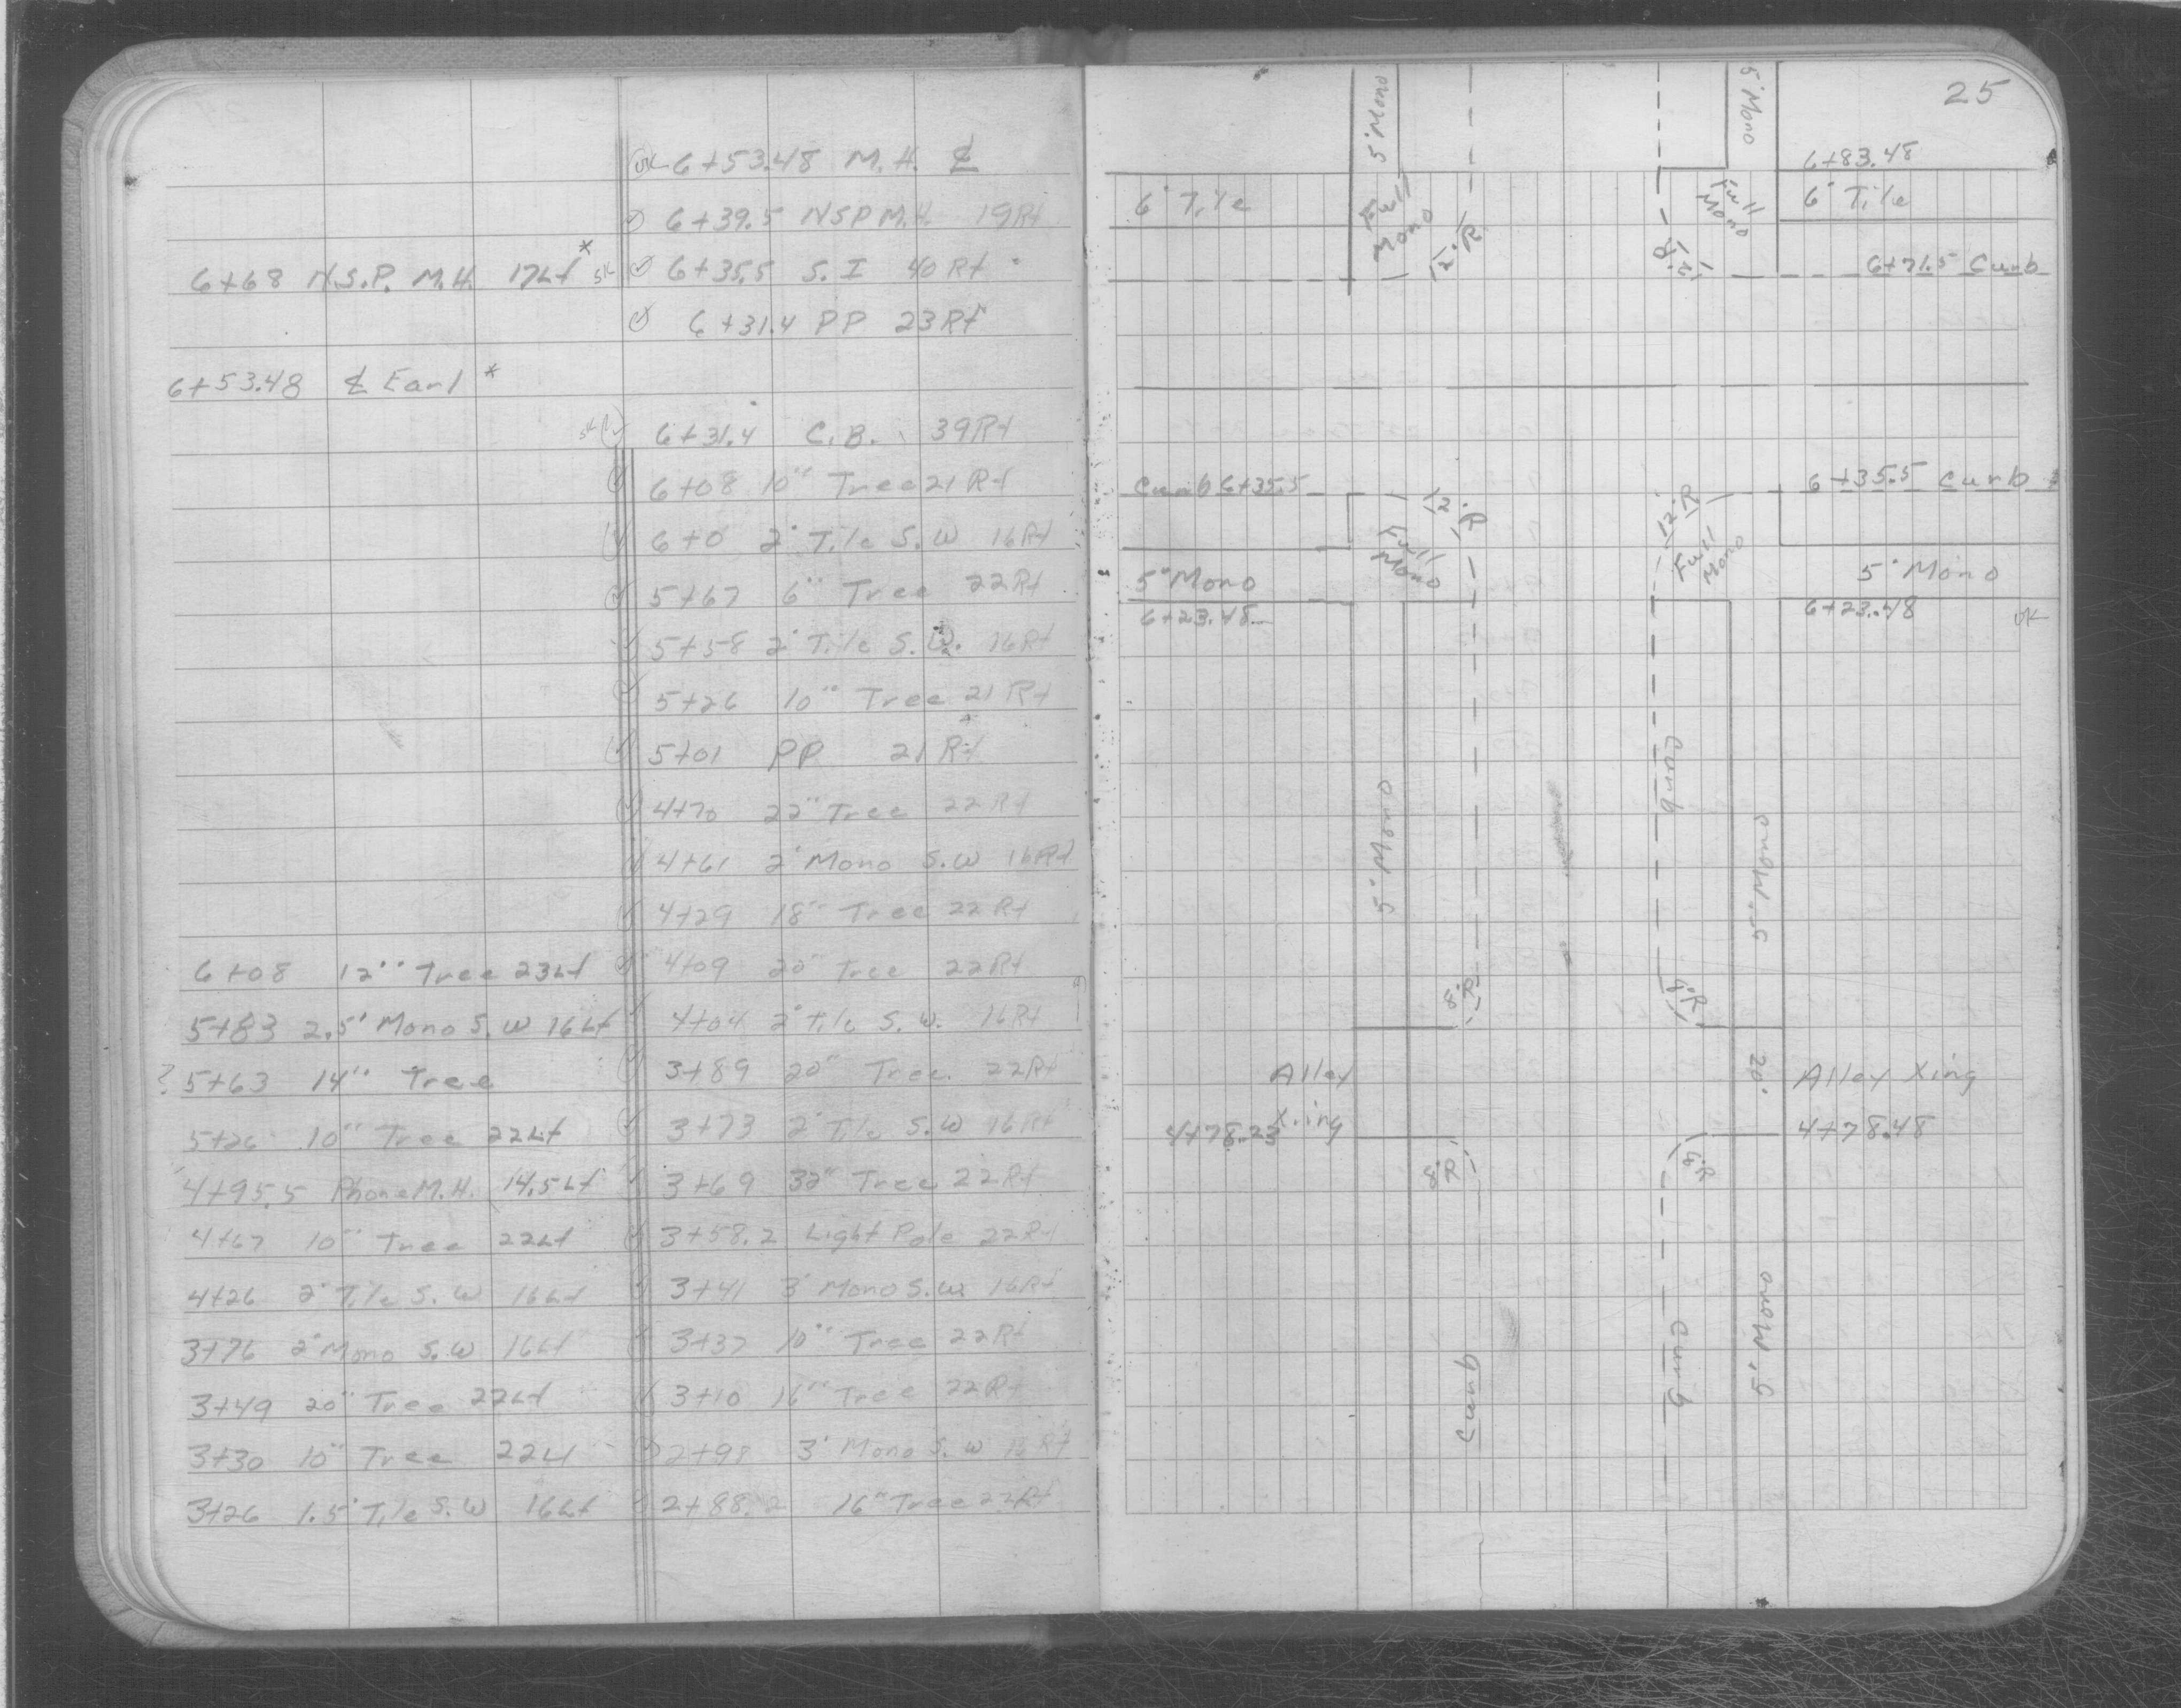 6+53.48 M.H. ℄
6+39.5 NSP M.H. 19Rt
6+68 N.S.P. M.H. 17Lt *
6+35.5 S.I 40Rt
6+31.4 PP 23Rt
6+53.48 ℄ Earl *
6+31.4 C.B. 39Rt
6+08 10" Tree 21Rt
6+0 2' Tile S.W 16Rt
5+67 6" Tree 22Rt
5+58 2' Tile S.W. 16Rt
5+26 10" Tree 21Rt
5+01 PP 21Rt
4+70 22" Tree 22Rt
4+61 2' Mono S.W 16Rt
4+29 18" Tree 22Rt
6+08 12" Tree 23Lt
4+09 20" Tree 22Rt
5+83 2.5' Mono S.W 16Lt
4+04 2' Tile S.W. 16Rt
? 5+63 14" Tree
3+89 20" Tree. 22Rt
5+26 10" Tree 22Lt
3+73 2' Tile S.W 16Rt
4+95.5 Phone M.H. 14.5Lt
3+69 32" Tree 22Rt
4+67 10" Tree 22Lt
3+58.2 Light Pole 22Rt
4+26 2' Tile S.W 16Lt
3+41 3' Mono S.W 16Rt
3+76 2' Mono S.W 16Lt
3+37 10" Tree 22Rt
3+49 20" Tree 22Lt
3+10 16" Tree 22Rt
3+30 10" Tree 22Lt
2+98 3' Mono S.W Rt
3+26 1.5' Tile S.W 16Lt
2+88.2 16" Tree 22Rt
25
5' Mono
5' Mono
6+83.48
6' Tile
Full
Mono
12'R
Full
Mono
12'R
6' Tile
6+71.5 Curb
Curb 6+35.5
12'R
Full
Mono
12'R
Full
Mono
6+35.5 Curb
5' Mono
5' Mono
6+23.48
6+23.48
Curb
5' Mono
5' Mono
8'R
8'R
Alley
Xing
20'
Alley Xing
4+78.23
4+78.48
8'R
8'R
Curb
Curb
5' Mono